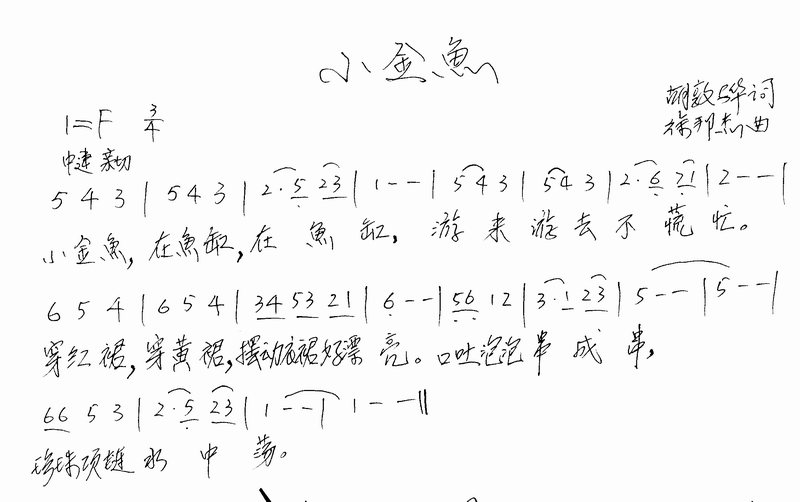 小金魚
胡敦骅词
1=F 3/4
徐邦杰曲
中速 亲切
5 4 3 | 5 4 3 | 2·5 23 | 1 - - | 5 4 3 | 54 3 | 2·6 21 | 2 - - |
小金魚,在魚缸,在魚缸,游来游去不慌忙。
6 5 4 | 6 5 4 | 34 53 21 | 6 - - | 56 12 | 3·1 23 | 5 - - | 5 - - |
穿红裙,穿黄裙,摆动衣裙好漂亮。口吐泡泡串成串,
66 5 3 | 2·5 23 | 1 - - | 1 - - ||
珍珠项链水中荡。